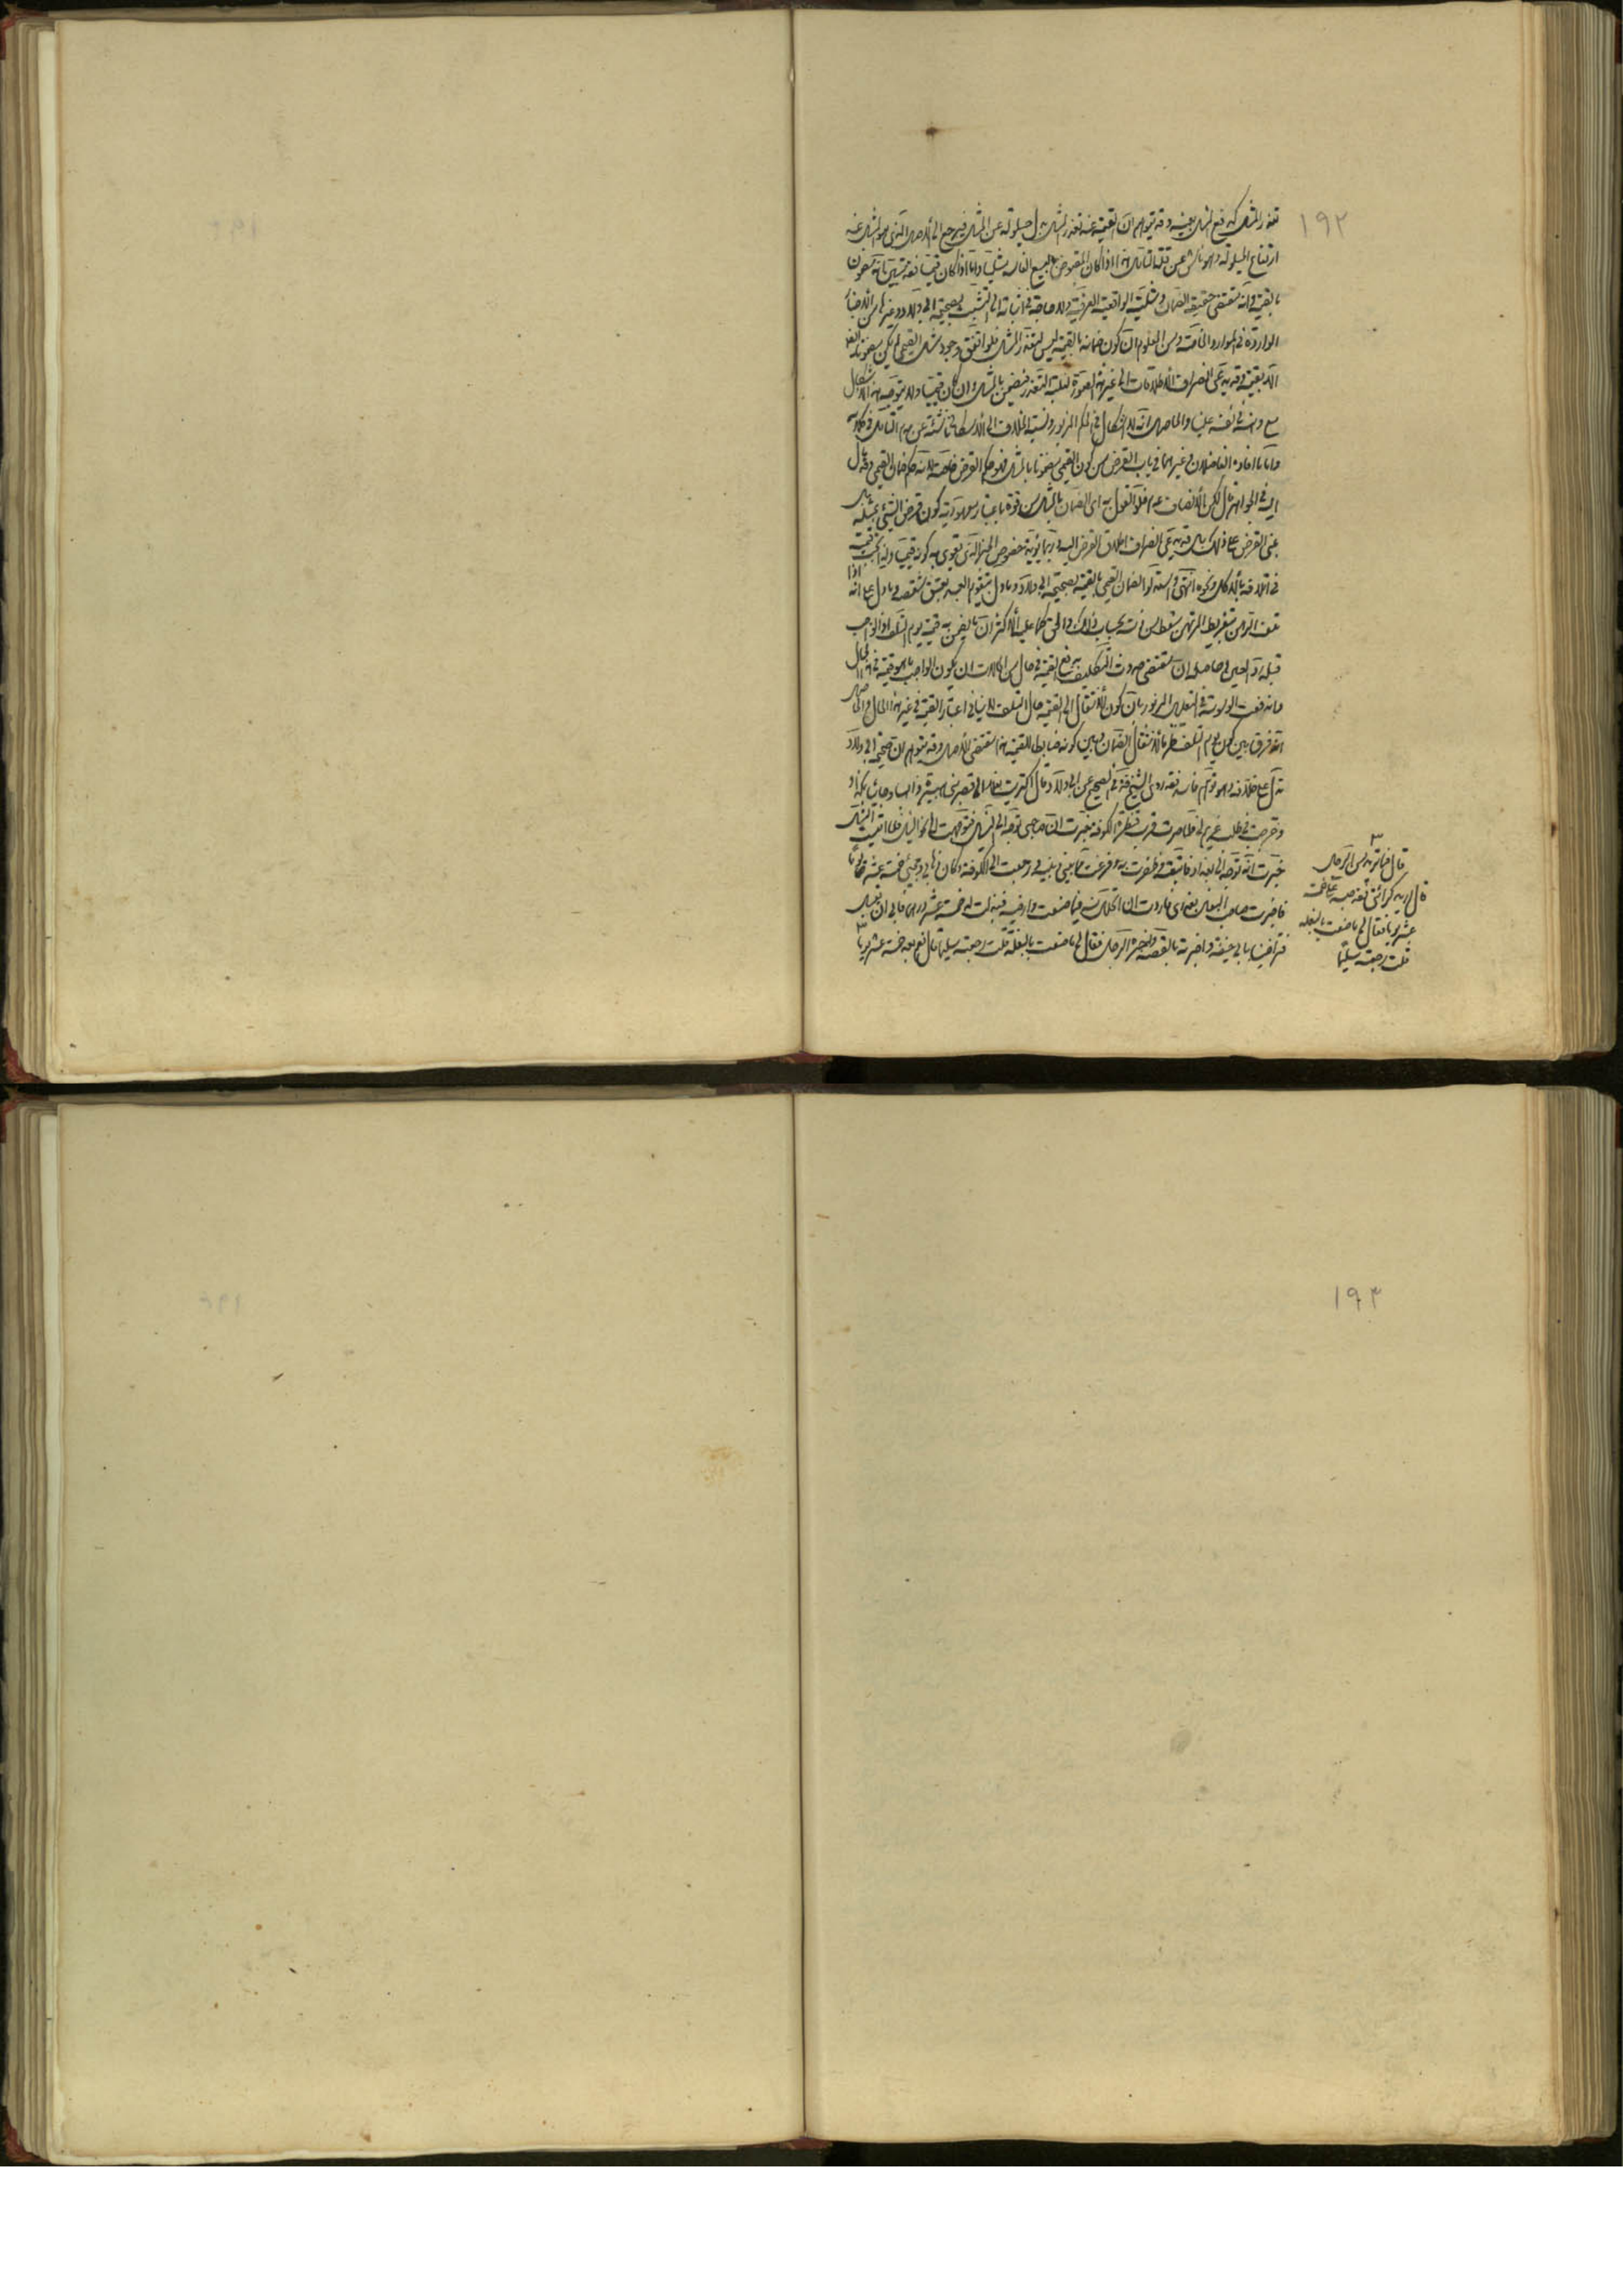 ١٩٢
تعذر المثل كدفع المثل بعينه وقد يتوهم ان القيمة عند تعذر المثل بدل حيلولة عن المثل فيرجع الى الاصل الذى هو المثل عند
ارتفاع الحيلولة وهو ناش عن قلة التأمل هذا اذا كان المقبوض بالبيع الفاسد مثليا واما اذا كان قيميا فقد تبين انه مضمون
بالقيمة وانه مقتضى حقيقة الضمان و الواقعية العرفية ولا حاجة فى اثباته الى التشبث بصحيحة ابى ولاد وغيرها من الاخبار
الواردة فى الموارد الخاصة ومن المعلوم ان كون ضمانه بالقيمة ليس لتعذر المثل فلو اتفق وجود مثل القيمى لم يكن مضمونا
الا بقيمته وقد يدعى انصراف الاطلاقات الى غير هذه الصورة لغلبة التعذر فيضمن بالمثل وان كان قيميا ولا يتوجه هذا الاشكال
مع وانه فى نفسه عليا والحاصل انه لا اشكال فى الحكم المزبور ونسبة الخلاف الى الاسكافى ناشئة عن عدم التأمل فى كلامه
واما ما افاده الفاضلان وغيرهما فى باب القرض من كون القيمى مضمونا بالمثل فهو حكم القرض خاصة لانه حكم ضمان القيمى وقد مال
اليه فى الجواهر قال لكن الانصاف عدم خلو القول به اى الضمان بالمثل من قوة باعتبار معهودية كون قرض الشىء بمثله
بنى القرض على ذلك بل قد يدعى انصراف اطلاق القرض اليه وربما يؤيده خصوص الخبز الذى يقوى به كونه قيميا ولذا يجب قيمته
فى اتلافه بالاكل ونحوه انتهى واستدلوا لضمان القيمى بالقيمة بصحيحة ابى ولاد وما دل بتقويم العبد بعتق شقصه وما دل على انه اذا
تلف الرهن بتفريط المرتهن سقط من دينه بحساب ذلك والمحكى كما عليه الاكثر ان ما يضمن به قيمة يوم التلف اذ الواجب
قبله رد العين وحاصله ان مقتضى حدوث التكليف بدفع القيمة فى حال من الحالات ان يكون الواجب ما هو قيمة فى هذا الحال
فاندفعت الوسوسة فى التعليل المزبور بان كون الانتقال الى القيمة حال التلف لا ينافى اعتبار القيمة فى غير هذا الحال والحاصل
انه فرق بين كون يوم التلف ظرفا لانتقال الضمان وبين كونه ضابطا للقيمة هذا مقتضى الاصل وقد يتوهم ان صحيحة ابى ولاد
تدل على خلافه وهو توهم فاسد فقد روى الشيخ فى الصحيح عن ابى ولاد قال اكتريت بغلا الى قصر بنى هبيرة ذاهبا وجائيا بكذا
وخرجت فى طلب غريم لى فلما صرت قرب قنطرة الكوفة خبرت ان صاحبى توجه الى النيل فتوجهت الى نحو النيل فلما اتيت النيل
خبرت انه توجه الى بغداد فاتبعته وظفرت به وفرغت مما بينى وبينه ورجعت الى الكوفة وكان ذهابى ومجيئى خمسة عشر يوما
فاخبرت صاحب البغل بعذرى فاردت ان اتحلل منه فيما صنعت وارضيه فبذلت له خمسة عشر درهما فابى ان يقبل
فتراضينا بابى حنيفة واخبرته بالقصة واخبره الرجل فقال لى ما صنعت بالبغلة قلت رجعته سليما قال نعم بعد خمسة عشر يوما ٣
٣
قال فما تريد من الرجل
قال اريد كرائى فقد حبسه على خمسة
عشر يوما فقال لى ما صنعت بالبغلة
قلت رجعته سليما
١٩٣